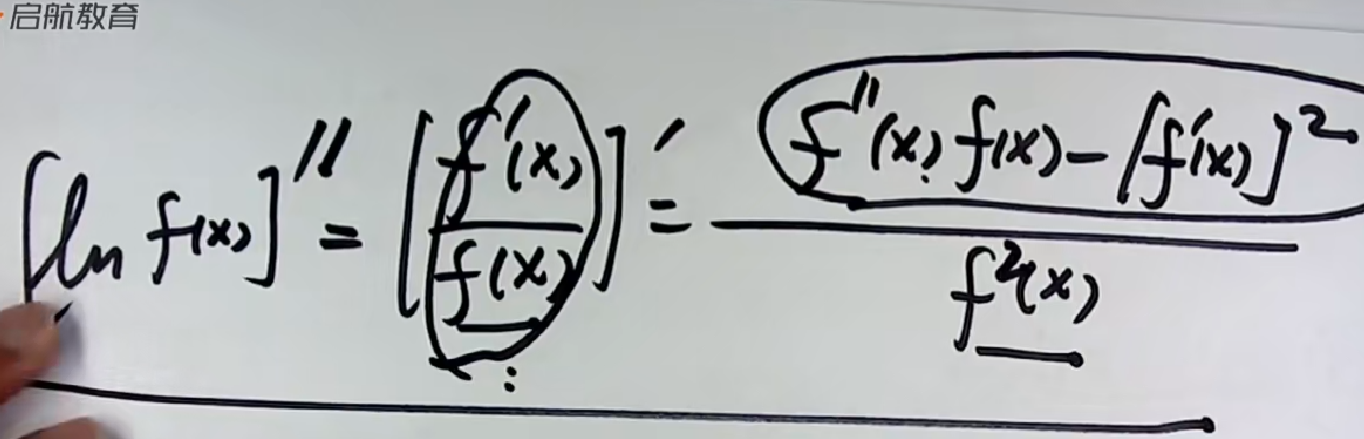 启航教育
[ln f(x)]'' = [f'(x)/f(x)]' = (f''(x) f(x) - [f'(x)]²)/f²(x)